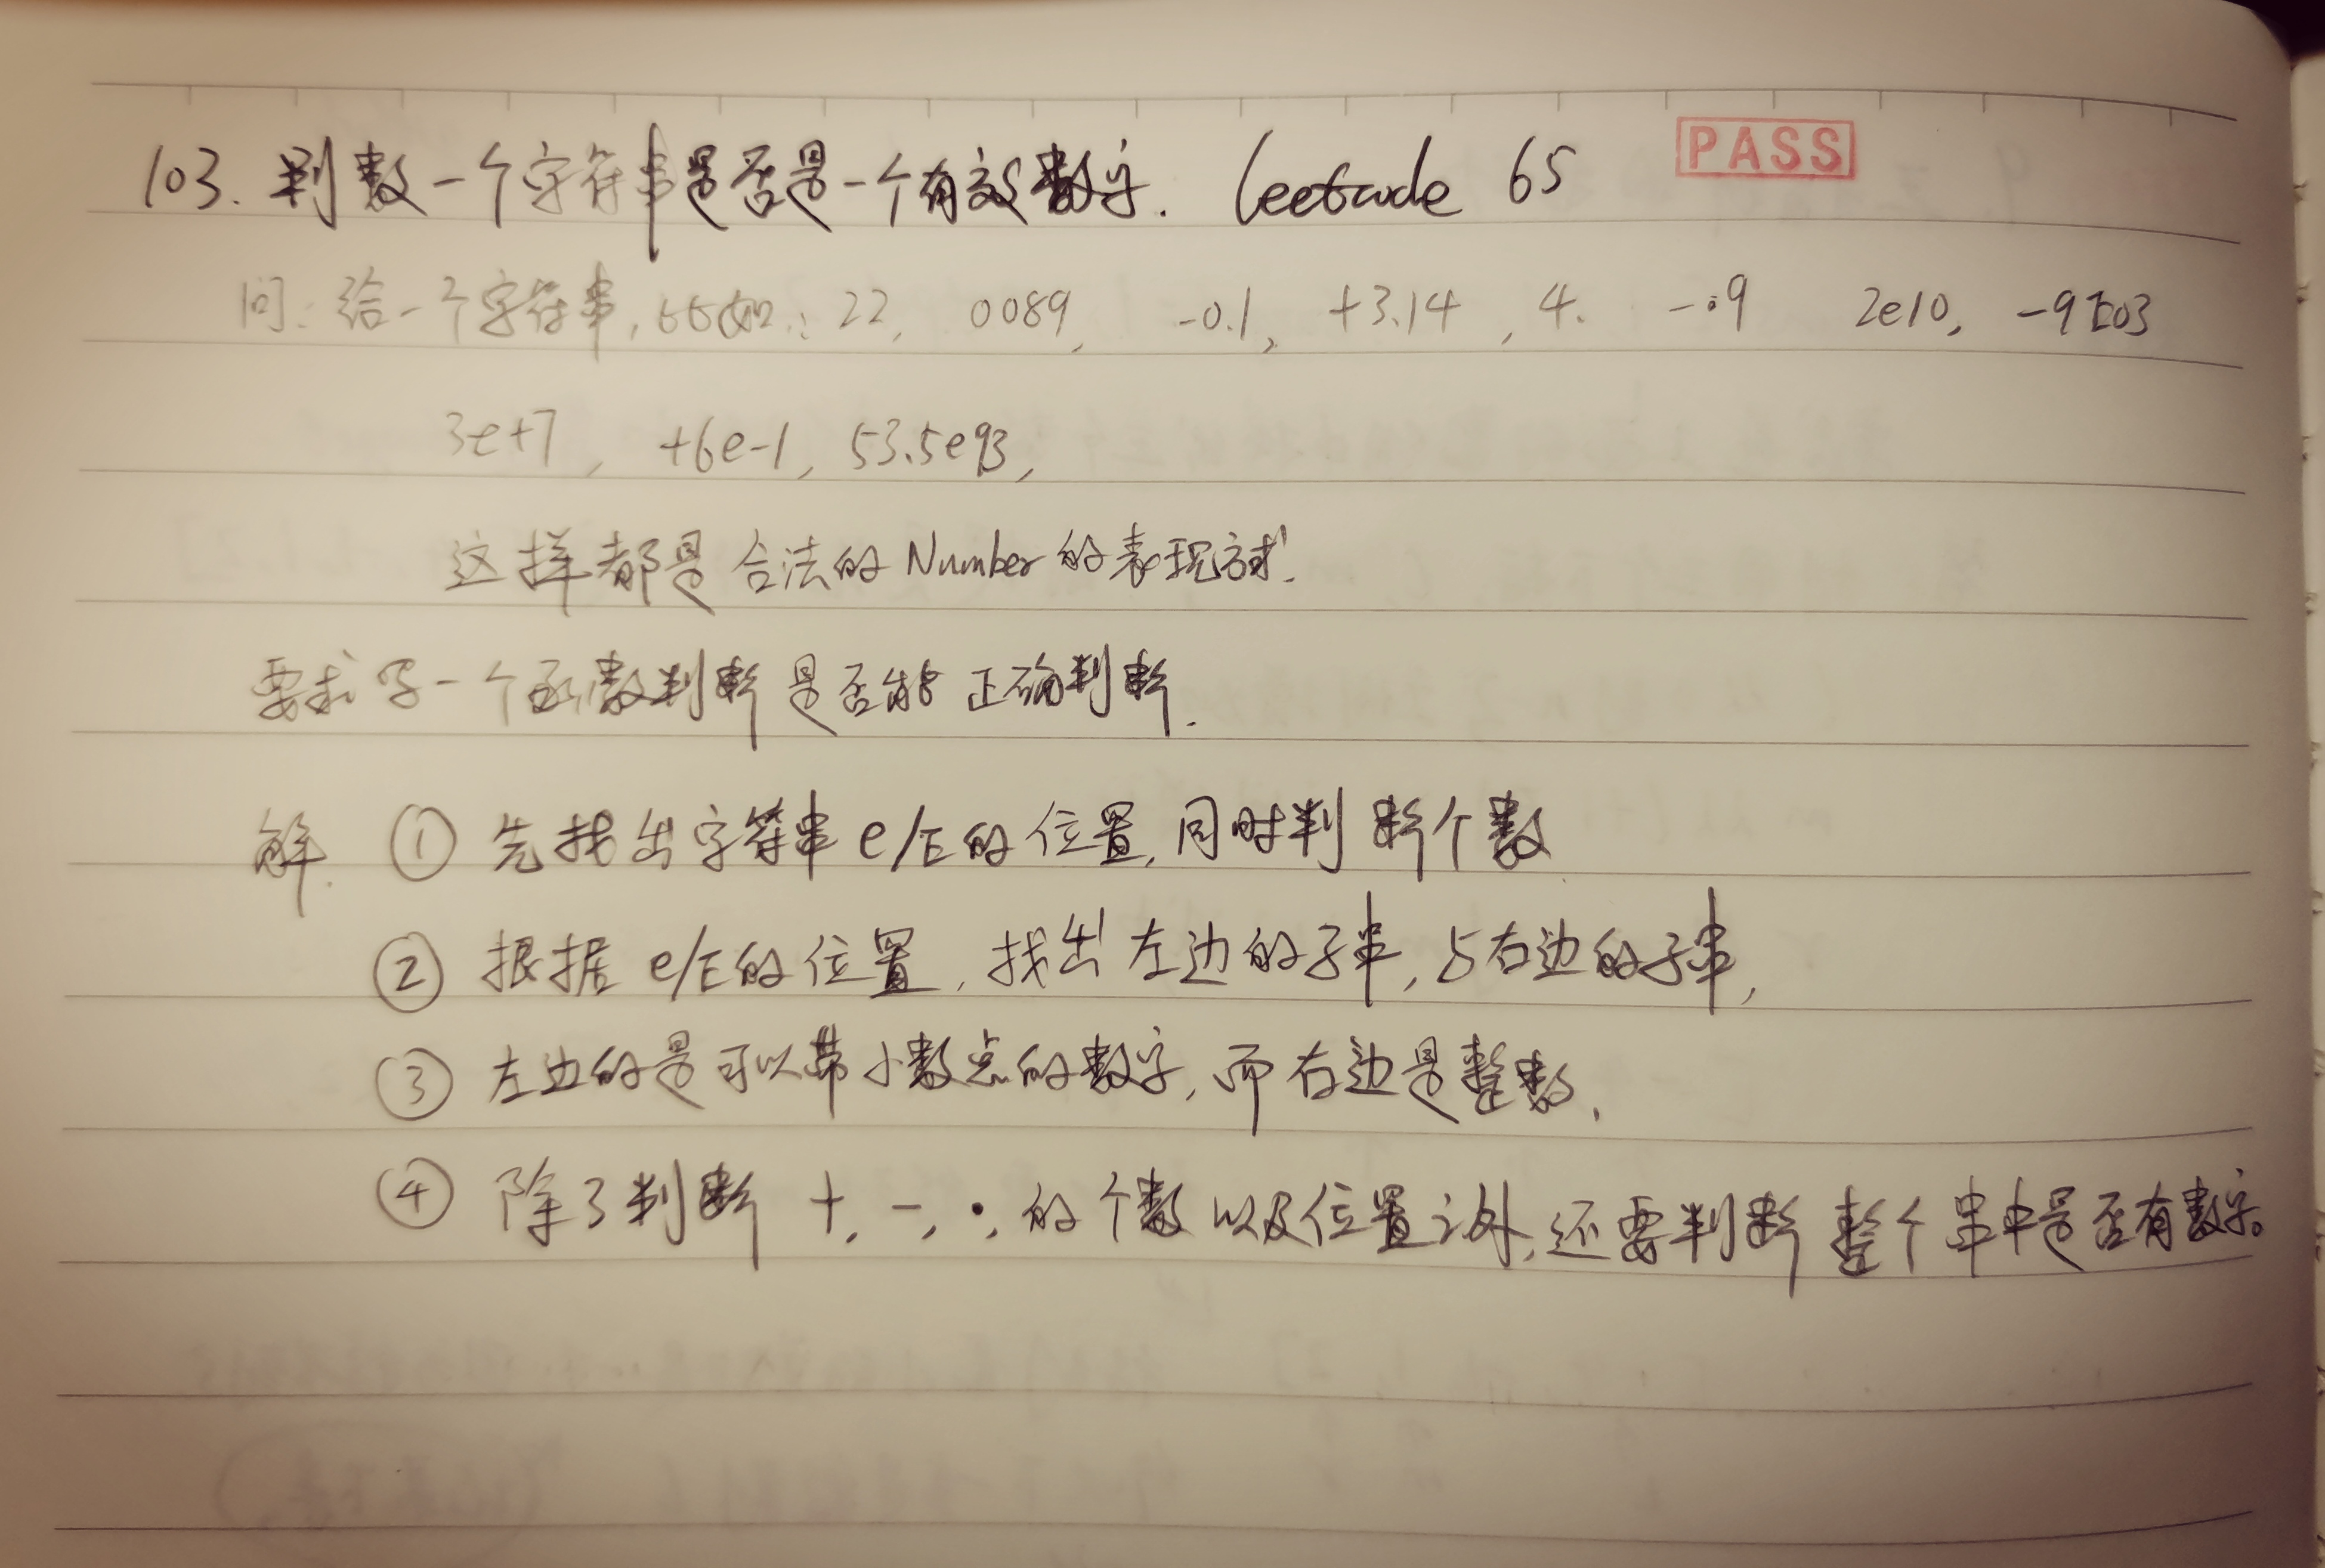 103. 判数一个字符串是否是一个有效数字. leetcode 65 PASS
问: 给一个字符串, 比如: 22, 0089, -0.1, +3.14, 4. -.9 2e10, -9E03
3e+7, +6e-1, 53.5e93,
这样都是合法的Number的表现方式.
要求写一个函数判断是否能正确判断.
解. ① 先找出字符串e/E的位置, 同时判断个数
② 根据e/E的位置, 找出左边的子串, 与右边的子串,
③ 左边的是可以带小数点的数字, 而右边是整数.
④ 除了判断 +, -, ·, 的个数以及位置之外, 还要判断整个串中是否有数字。